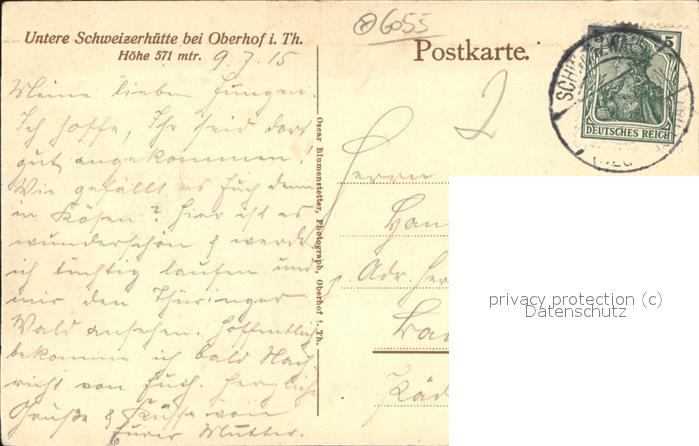 ⊗6055
Untere Schweizerhütte bei Oberhof i. Th.
Höhe 571 mtr.
9.7.15
Meine lieben Jungen.
Ich hoffe, Ihr seid dort
gut angekommen.
Wie gefällt es Euch denn
in Kösen? Hier ist es
wunderschön & werde
ich tüchtig laufen und
mir den Thüringer
Wald ansehen. Hoffentlich
bekomme ich bald Nach
richt von Euch. Herzliche
Grüße & Küsse von
Eurer Mutter.
Oscar Blumenstetter, Photograph, Oberhof i. Th.
Postkarte.
2
Herrn
Han
p. Adr. Her
Bad
Kö
5
DEUTSCHES REICH
privacy protection (c)
Datenschutz